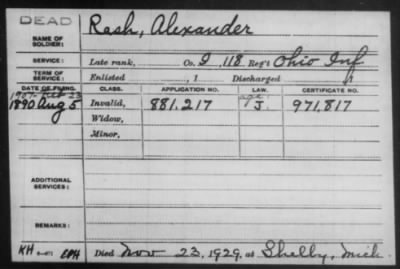 DEAD
NAME OF SOLDIER: Rash, Alexander
SERVICE: Late rank, Co. I, 118 Reg't Ohio Inf
TERM OF SERVICE: Enlisted , 1 Discharged , 1
DATE OF FILING. CLASS. APPLICATION NO. LAW. CERTIFICATE NO.
1907- Feb 23 age
1890 Aug 5 Invalid, 881.217 J. 971.817
Widow,
Minor,
ADDITIONAL SERVICES:
REMARKS:
KH Died Nov 23, 1929, at Shelby, Mich.